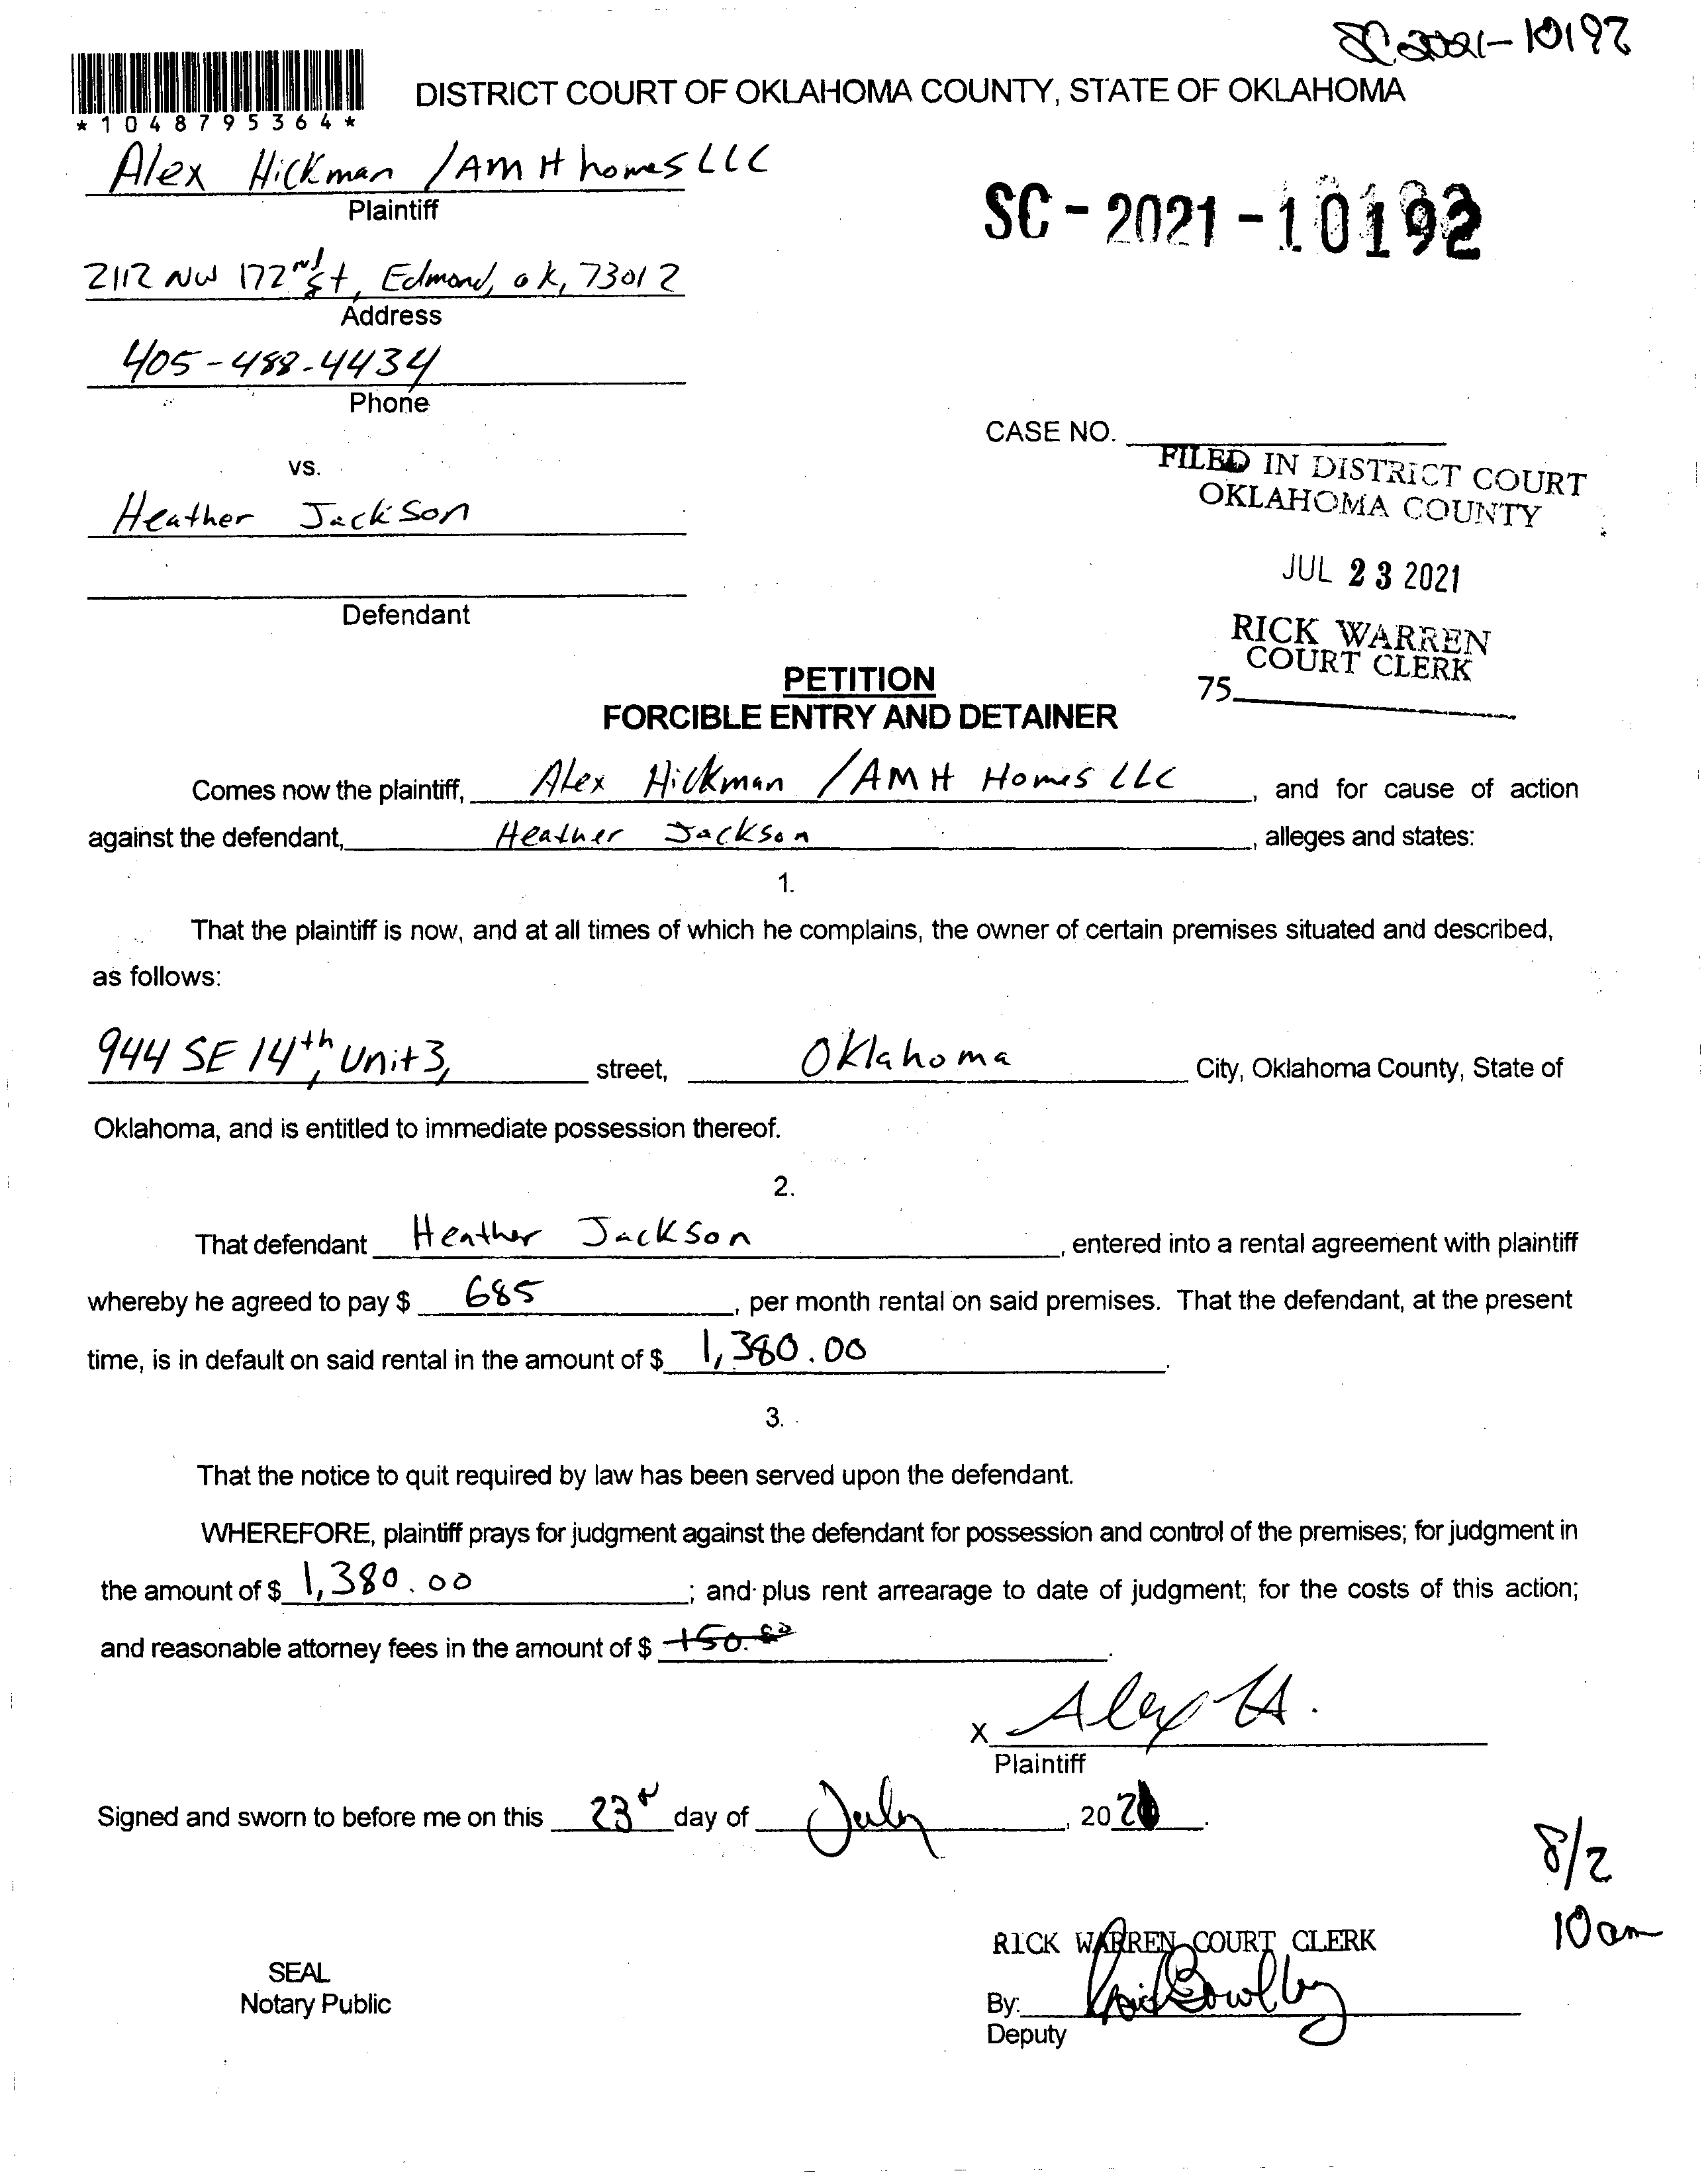 SC-2021-10192
*1048795364*
DISTRICT COURT OF OKLAHOMA COUNTY, STATE OF OKLAHOMA
Alex Hickman /AMH homes LLC
Plaintiff
SC-2021-10192
2112 NW 172nd St, Edmond, ok, 73012
Address
405-488-4434
Phone
CASE NO.
vs.
FILED IN DISTRICT COURT
OKLAHOMA COUNTY
Heather Jackson
JUL 23 2021
Defendant
RICK WARREN
COURT CLERK
75
PETITION
FORCIBLE ENTRY AND DETAINER
Comes now the plaintiff, Alex Hickman /AMH Homes LLC, and for cause of action
against the defendant, Heather Jackson, alleges and states:
1.
That the plaintiff is now, and at all times of which he complains, the owner of certain premises situated and described,
as follows:
944 SE 14th, Unit 3, street, Oklahoma City, Oklahoma County, State of
Oklahoma, and is entitled to immediate possession thereof.
2.
That defendant Heather Jackson, entered into a rental agreement with plaintiff
whereby he agreed to pay $ 685, per month rental on said premises. That the defendant, at the present
time, is in default on said rental in the amount of $ 1,380.00.
3.
That the notice to quit required by law has been served upon the defendant.
WHEREFORE, plaintiff prays for judgment against the defendant for possession and control of the premises; for judgment in
the amount of $ 1,380.00; and plus rent arrearage to date of judgment; for the costs of this action;
and reasonable attorney fees in the amount of $ 150.00.
X Alex H.
Plaintiff
Signed and sworn to before me on this 23rd day of July, 2021.
8/2
10am
RICK WARREN COURT CLERK
SEAL
Notary Public
By:
Deputy